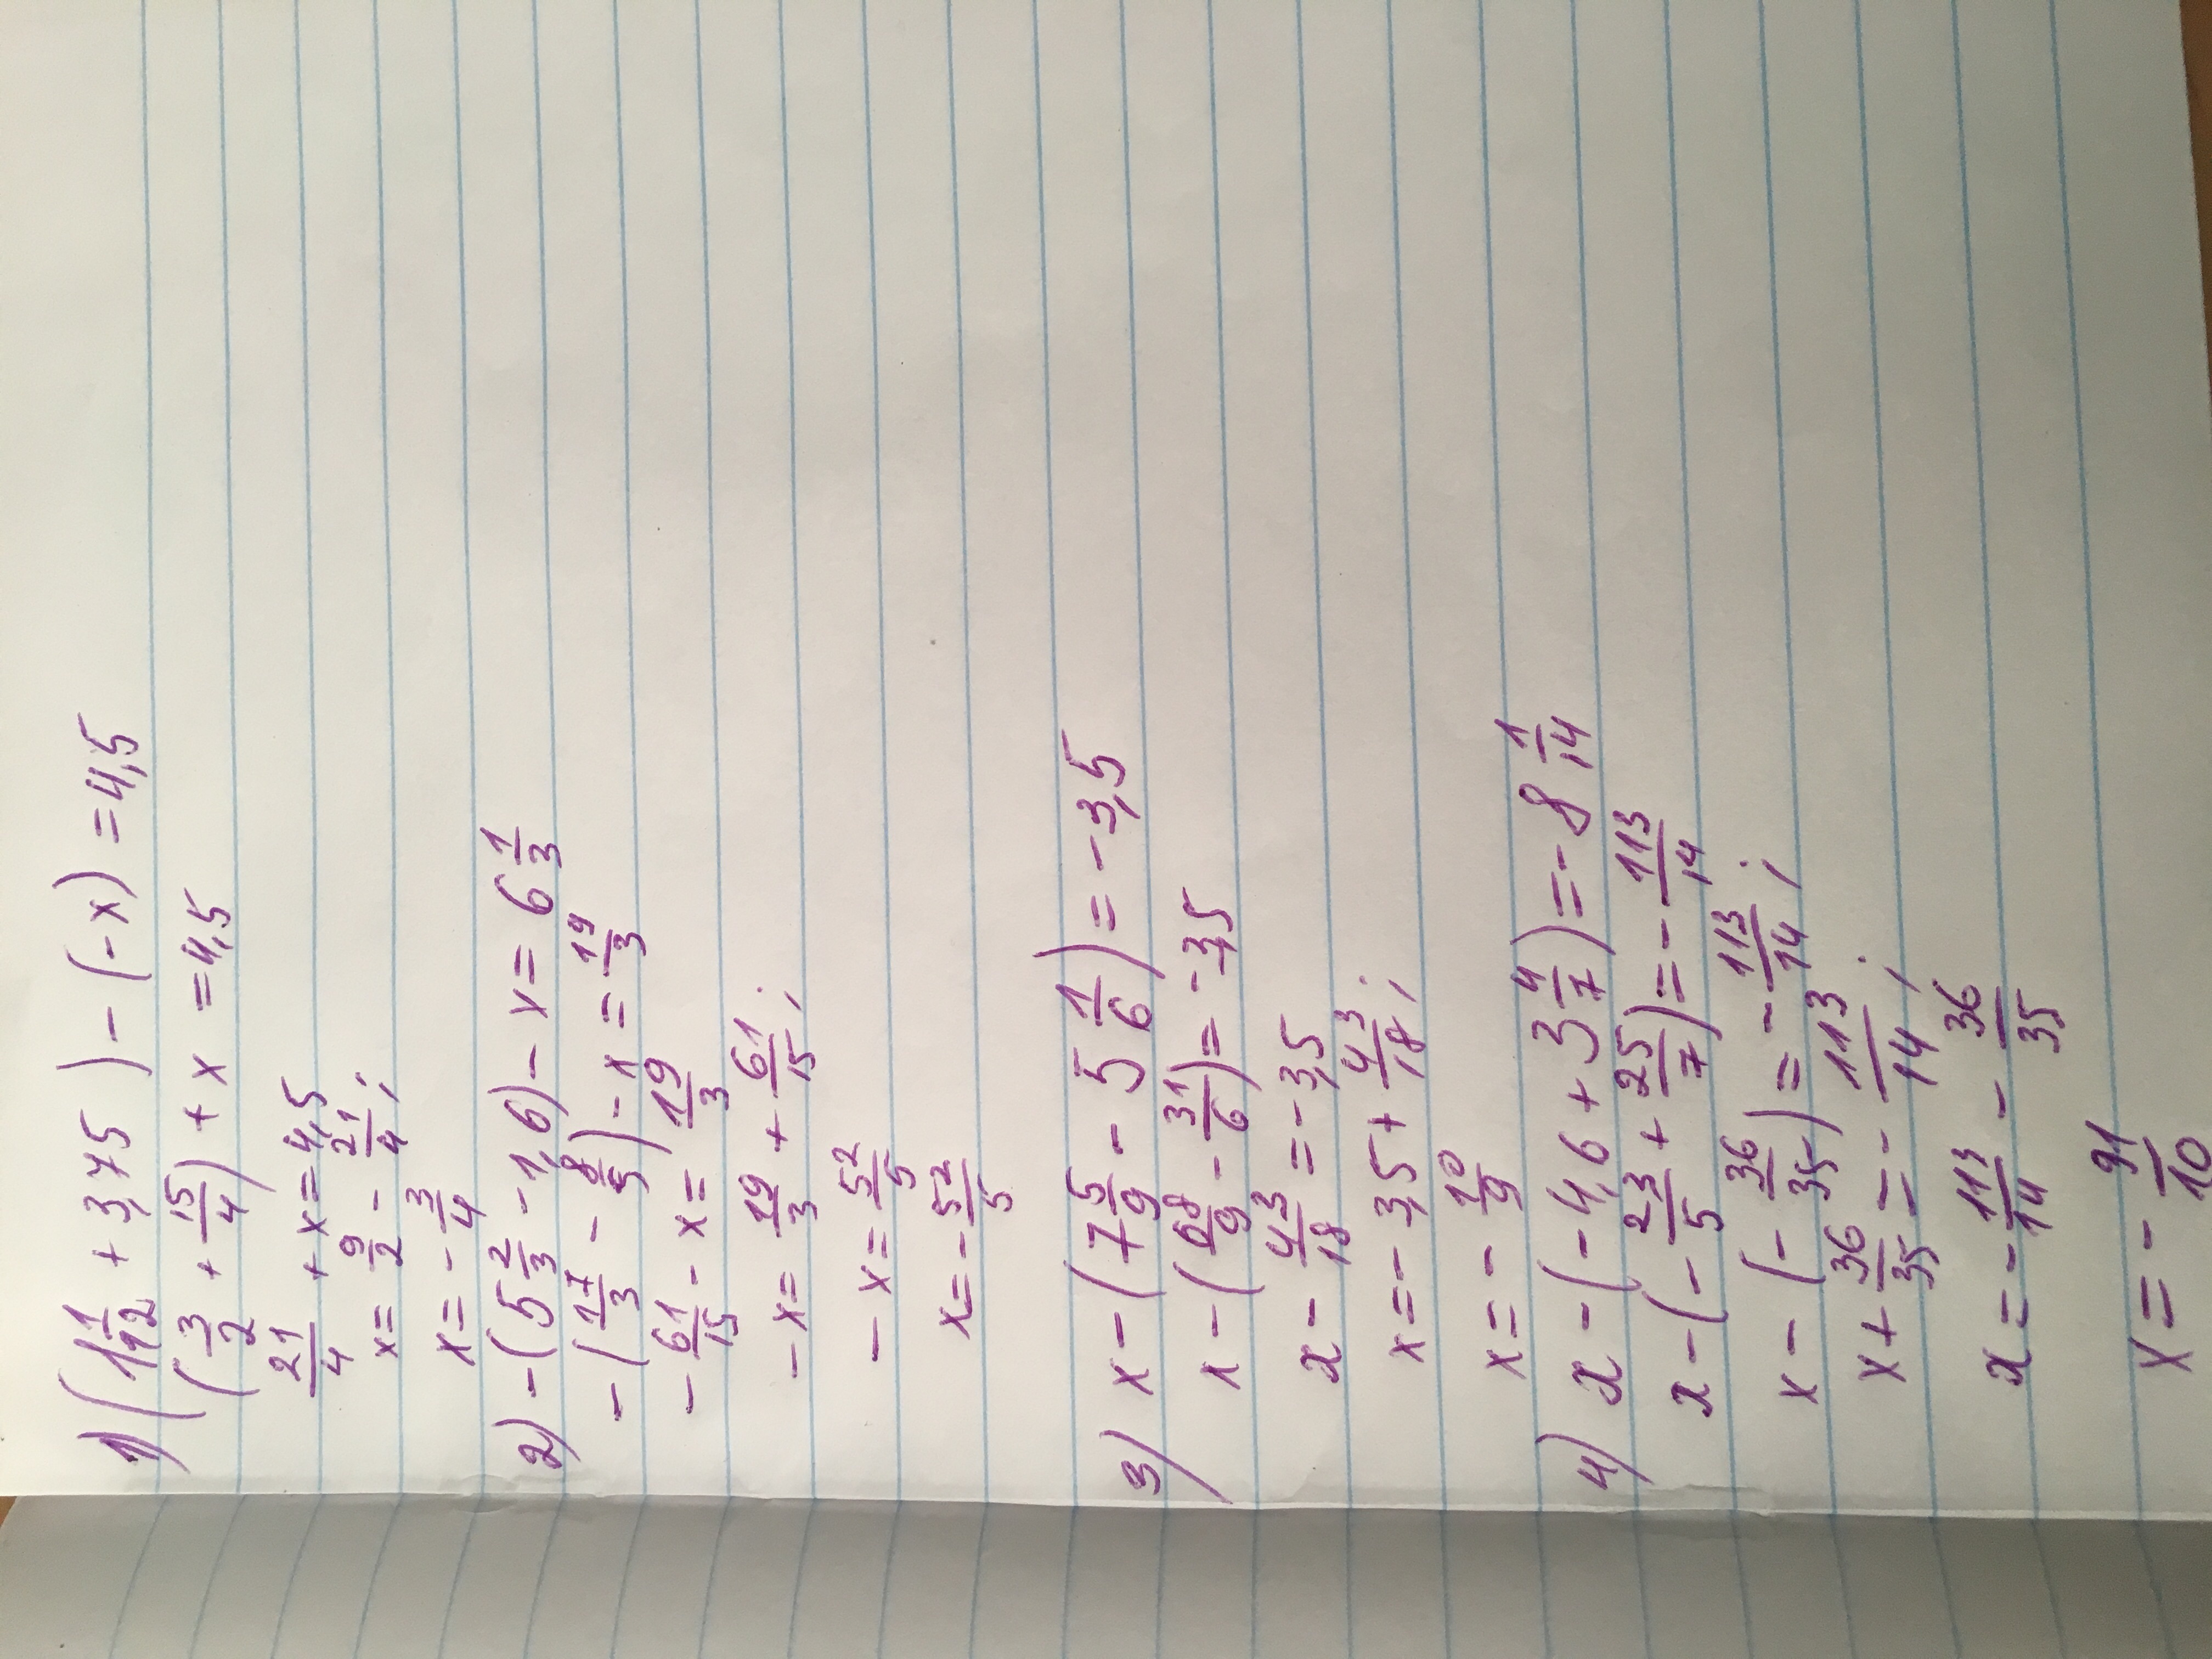 1) (1 1/2 + 3,75) - (-x) = 4,5
(3/2 + 15/4) + x = 4,5
21/4 + x = 4,5
x = 9/2 - 21/4;
x = - 3/4
2) -(5 2/3 - 1,6) - x = 6 1/3
-(17/3 - 8/5) - x = 19/3
- 61/15 - x = 19/3
- x = 19/3 + 61/15;
- x = 52/5
x = - 52/5
3) x - (7 5/9 - 5 1/6) = -3,5
x - (68/9 - 31/6) = -3,5
x - 43/18 = -3,5
x = -3,5 + 43/18;
x = - 10/9
4) x - (-4,6 + 3 4/7) = -8 1/14
x - (- 23/5 + 25/7) = - 113/14
x - (- 36/35) = - 113/14;
x + 36/35 = - 113/14;
x = - 113/14 - 36/35
x = - 91/10